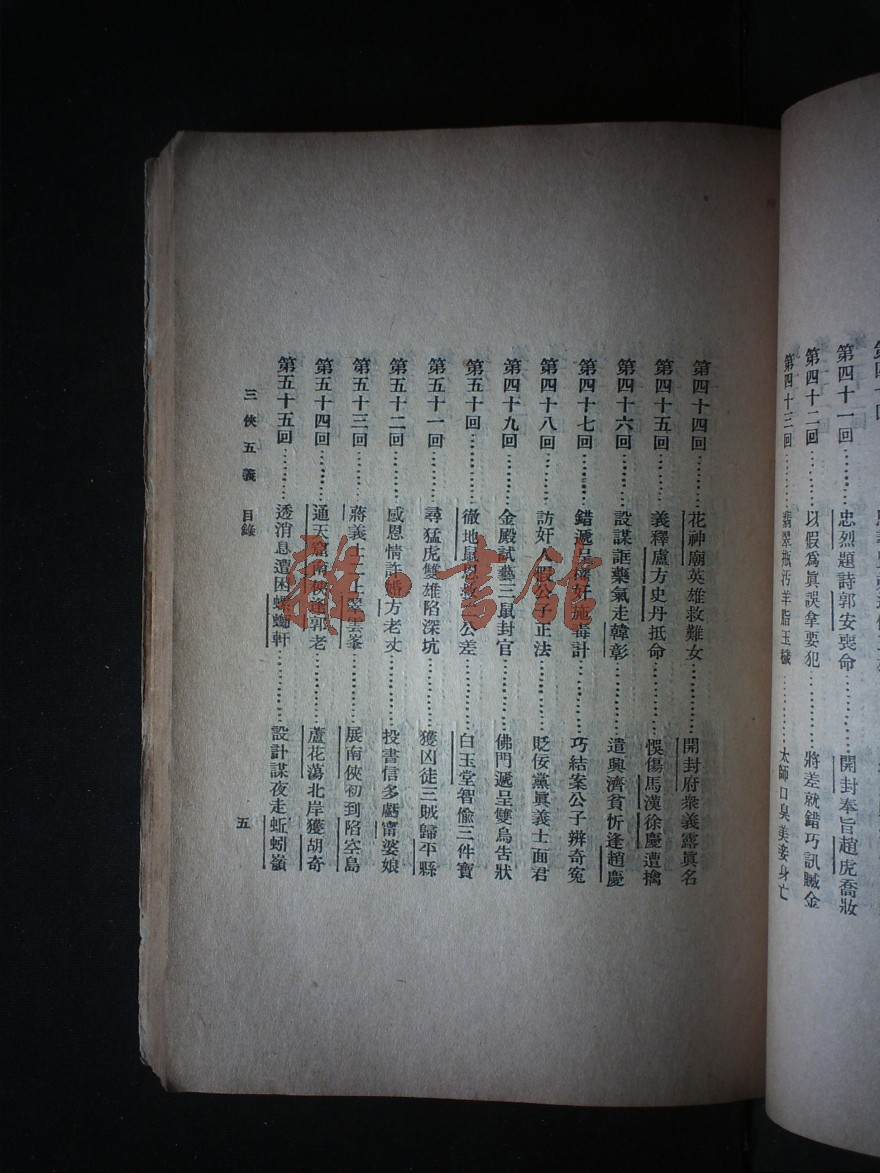 第四十一回………忠烈題詩郭安喪命………開封奉旨趙虎喬妝
第四十二回………以假爲眞誤拿要犯………將差就錯巧訊贓金
第四十三回………翡翠瓶汚羊脂玉穢………太師口臭美妾身亡
第四十四回………花神廟英雄救難女………開封府衆義露眞名
第四十五回………義釋盧方史丹抵命………悞傷馬漢徐慶遭擒
第四十六回………設謀誆藥氣走韓彰………遣興濟貧忻逢趙慶
第四十七回………錯遞呈權奸施毒計………巧結案公子辨奇寃
第四十八回………訪奸人假公子正法………貶佞黨眞義士面君
第四十九回………金殿試藝三鼠封官………佛門遞呈雙烏告狀
第五十回………徹地鼠恩救二公差………白玉堂智偷三件寶
第五十一回………尋猛虎雙雄陷深坑………獲凶徒三賊歸平縣
第五十二回………感恩情許婚方老丈………投書信多虧甯婆娘
第五十三回………蔣義士二上翠雲峯………展南俠初到陷空島
第五十四回………通天窟南俠逢郭老………蘆花蕩北岸獲胡奇
第五十五回………透消息遭困螺螄軒………設計謀夜走蚯蚓嶺
三俠五義 目錄 五
雜·書館